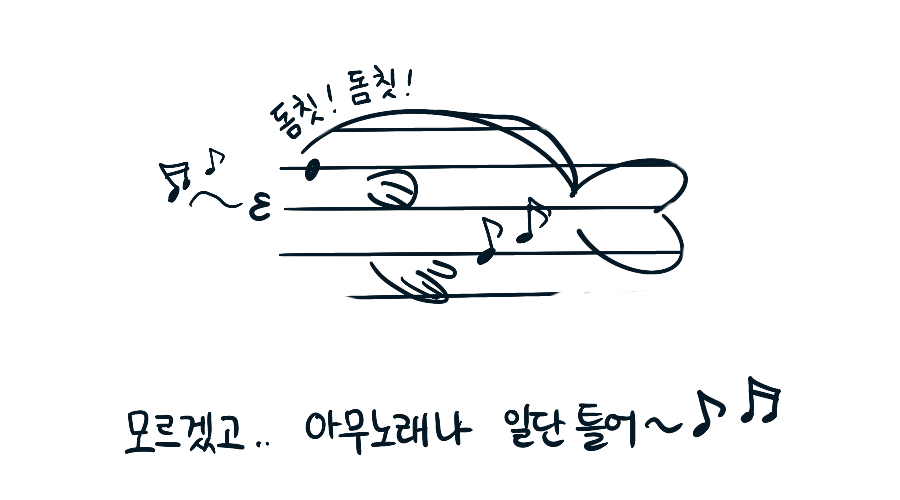 돔칫! 돔칫!
모르겠고.. 아무노래나 일단 틀어~